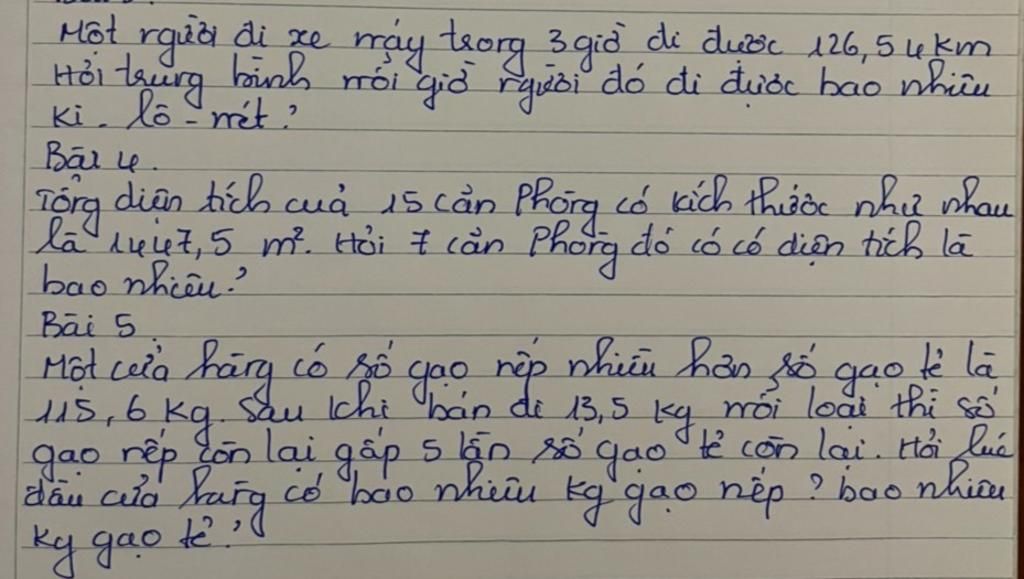 Một người đi xe máy trong 3 giờ đi được 126,54 km
Hỏi trung bình mỗi giờ người đó đi được bao nhiêu
Ki - lô - mét?
Bài 4.
Tổng diện tích của 15 căn Phòng có kích thước như nhau
là 1447,5 m². Hỏi 7 căn Phòng đó có có diện tích là
bao nhiêu?
Bài 5
Một cửa hàng có số gạo nếp nhiều hơn số gạo tẻ là
115,6 kg. Sau khi bán đi 13,5 kg mỗi loại thì số
gạo nếp còn lại gấp 5 lần số gạo tẻ còn lại. Hỏi lúc
đầu cửa hàng có bao nhiêu kg gạo nếp? bao nhiêu
kg gạo tẻ?